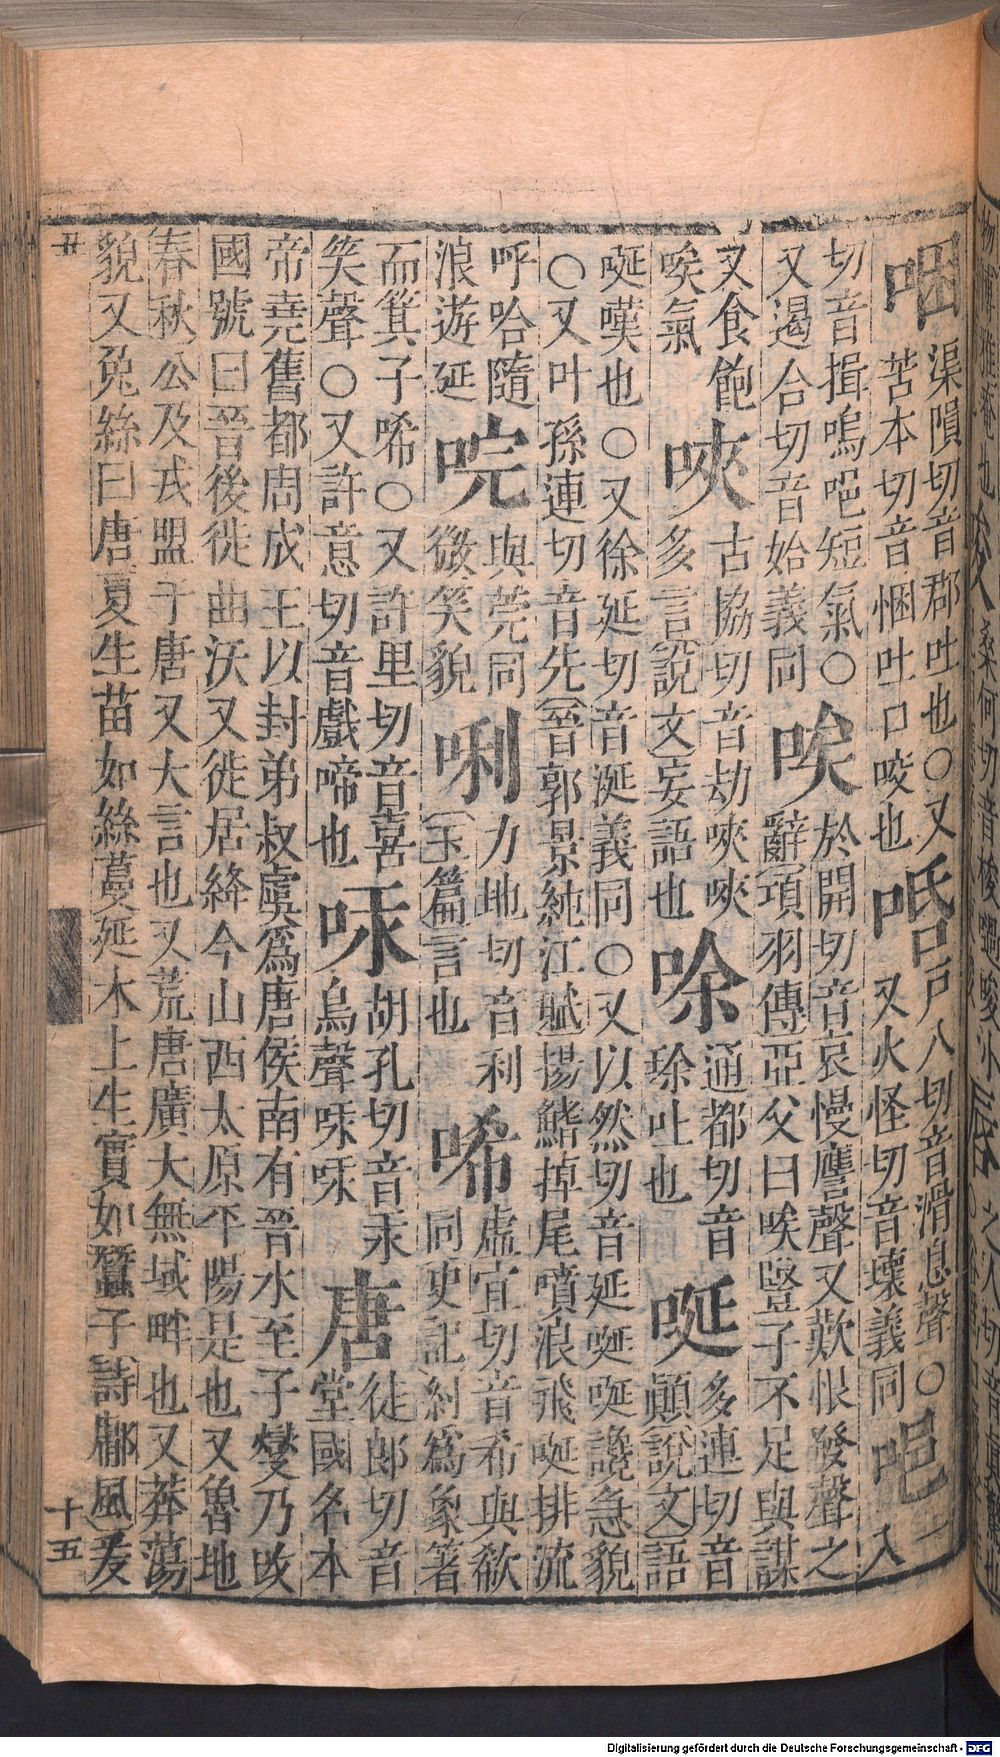 渠隕切音郡吐也○又
苦本切音悃吐口咬也
咶
戶八切音滑息聲○
又火怪切音壞義同
唈
一
入
切音揖嗚唈短氣○
又遏合切音始義同
唉
於開切音哀慢譍聲又歎恨發聲之
辭項羽傳亞父曰唉豎子不足與謀
又食飽
唉氣
唊
古協切音劫唊唊
多言説文妄語也
唋
通都切音
琜吐也
唌
多連切音
顚説文語
唌嘆也○又徐延切音涎義同○又以然切音延唌唌讒急貌
○又叶孫連切音先晉郭景純江賦揚鰭掉尾噴浪飛唌排流
呼哈隨
浪遊延
唍
與莞同
微笑貌
唎
力地切音利
玉篇言也
唏
虛宜切音希與欷
同史記紂爲象箸
而箕子唏○又許里切音喜
笑聲○又許意切音戲啼也
胡孔切音汞
烏聲
唐
徒郎切音
堂國名本
帝堯舊都周成王以封弟叔虞爲唐侯南有晉水至子燮乃改
國號曰晉後徙曲沃又徙居絳今山西太原平陽是也又魯地
春秋公及戎盟于唐又大言也又荒唐廣大無域畔也又莽蕩
貌又兔絲曰唐夏生苗如絲蔓延木上生實如蠶子詩鄘風爰
丑
十五
Digitalisierung gefördert durch die Deutsche Forschungsgemeinschaft - DFG